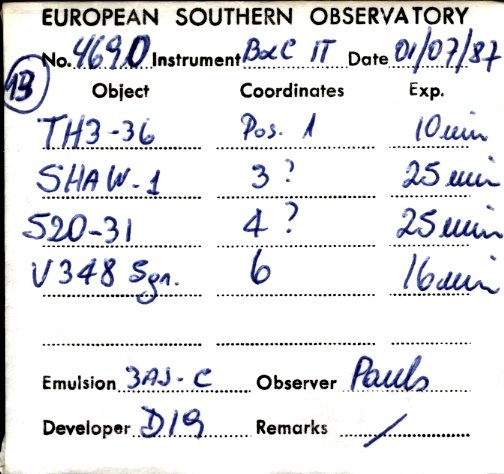 EUROPEAN SOUTHERN OBSERVATORY
No. 4690 Instrument B&C IT Date 01/07/87
13
Object Coordinates Exp.
TH3-36 Pos. 1 10 min
SHAW-1 3 ? 25 min
520-31 4 ? 25 min
V348 Sgr. 6 16 min
Emulsion 3AJ-C Observer Pauls
Developer D19 Remarks /